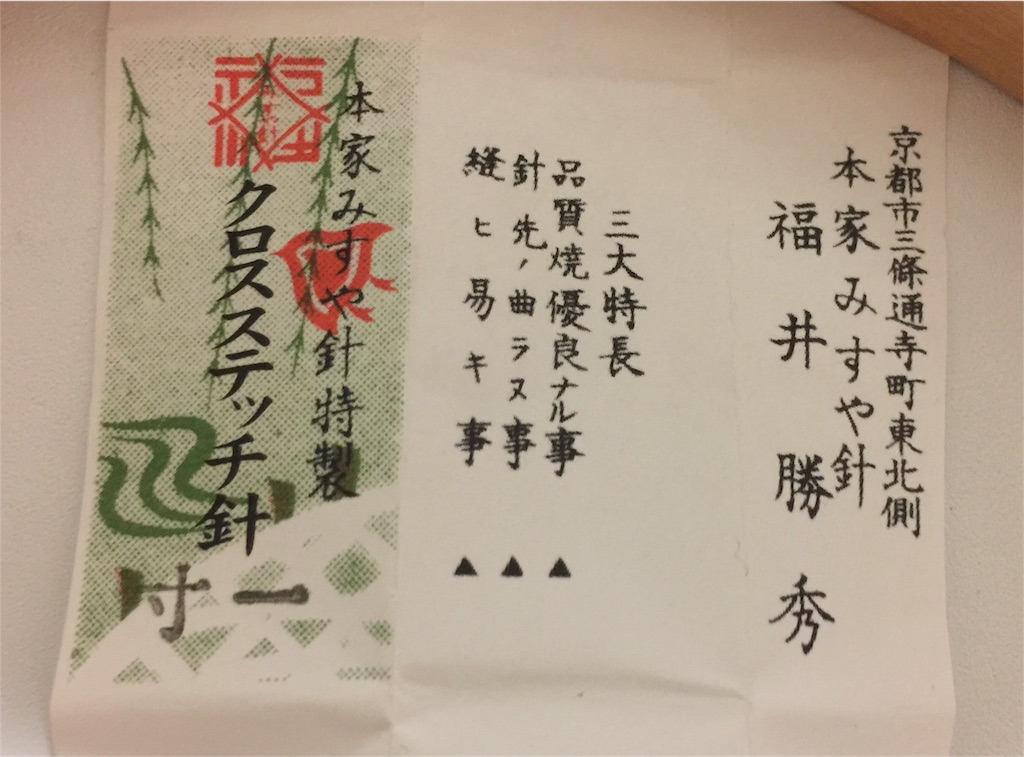 京都市三條通寺町東北側
本家みすや針
福井勝秀
三大特長
品質焼優良ナル事▲
針先ノ曲ラヌ事▲
縫ヒ易キ事▲
本家みすや針特製
クロスステッチ針
一寸